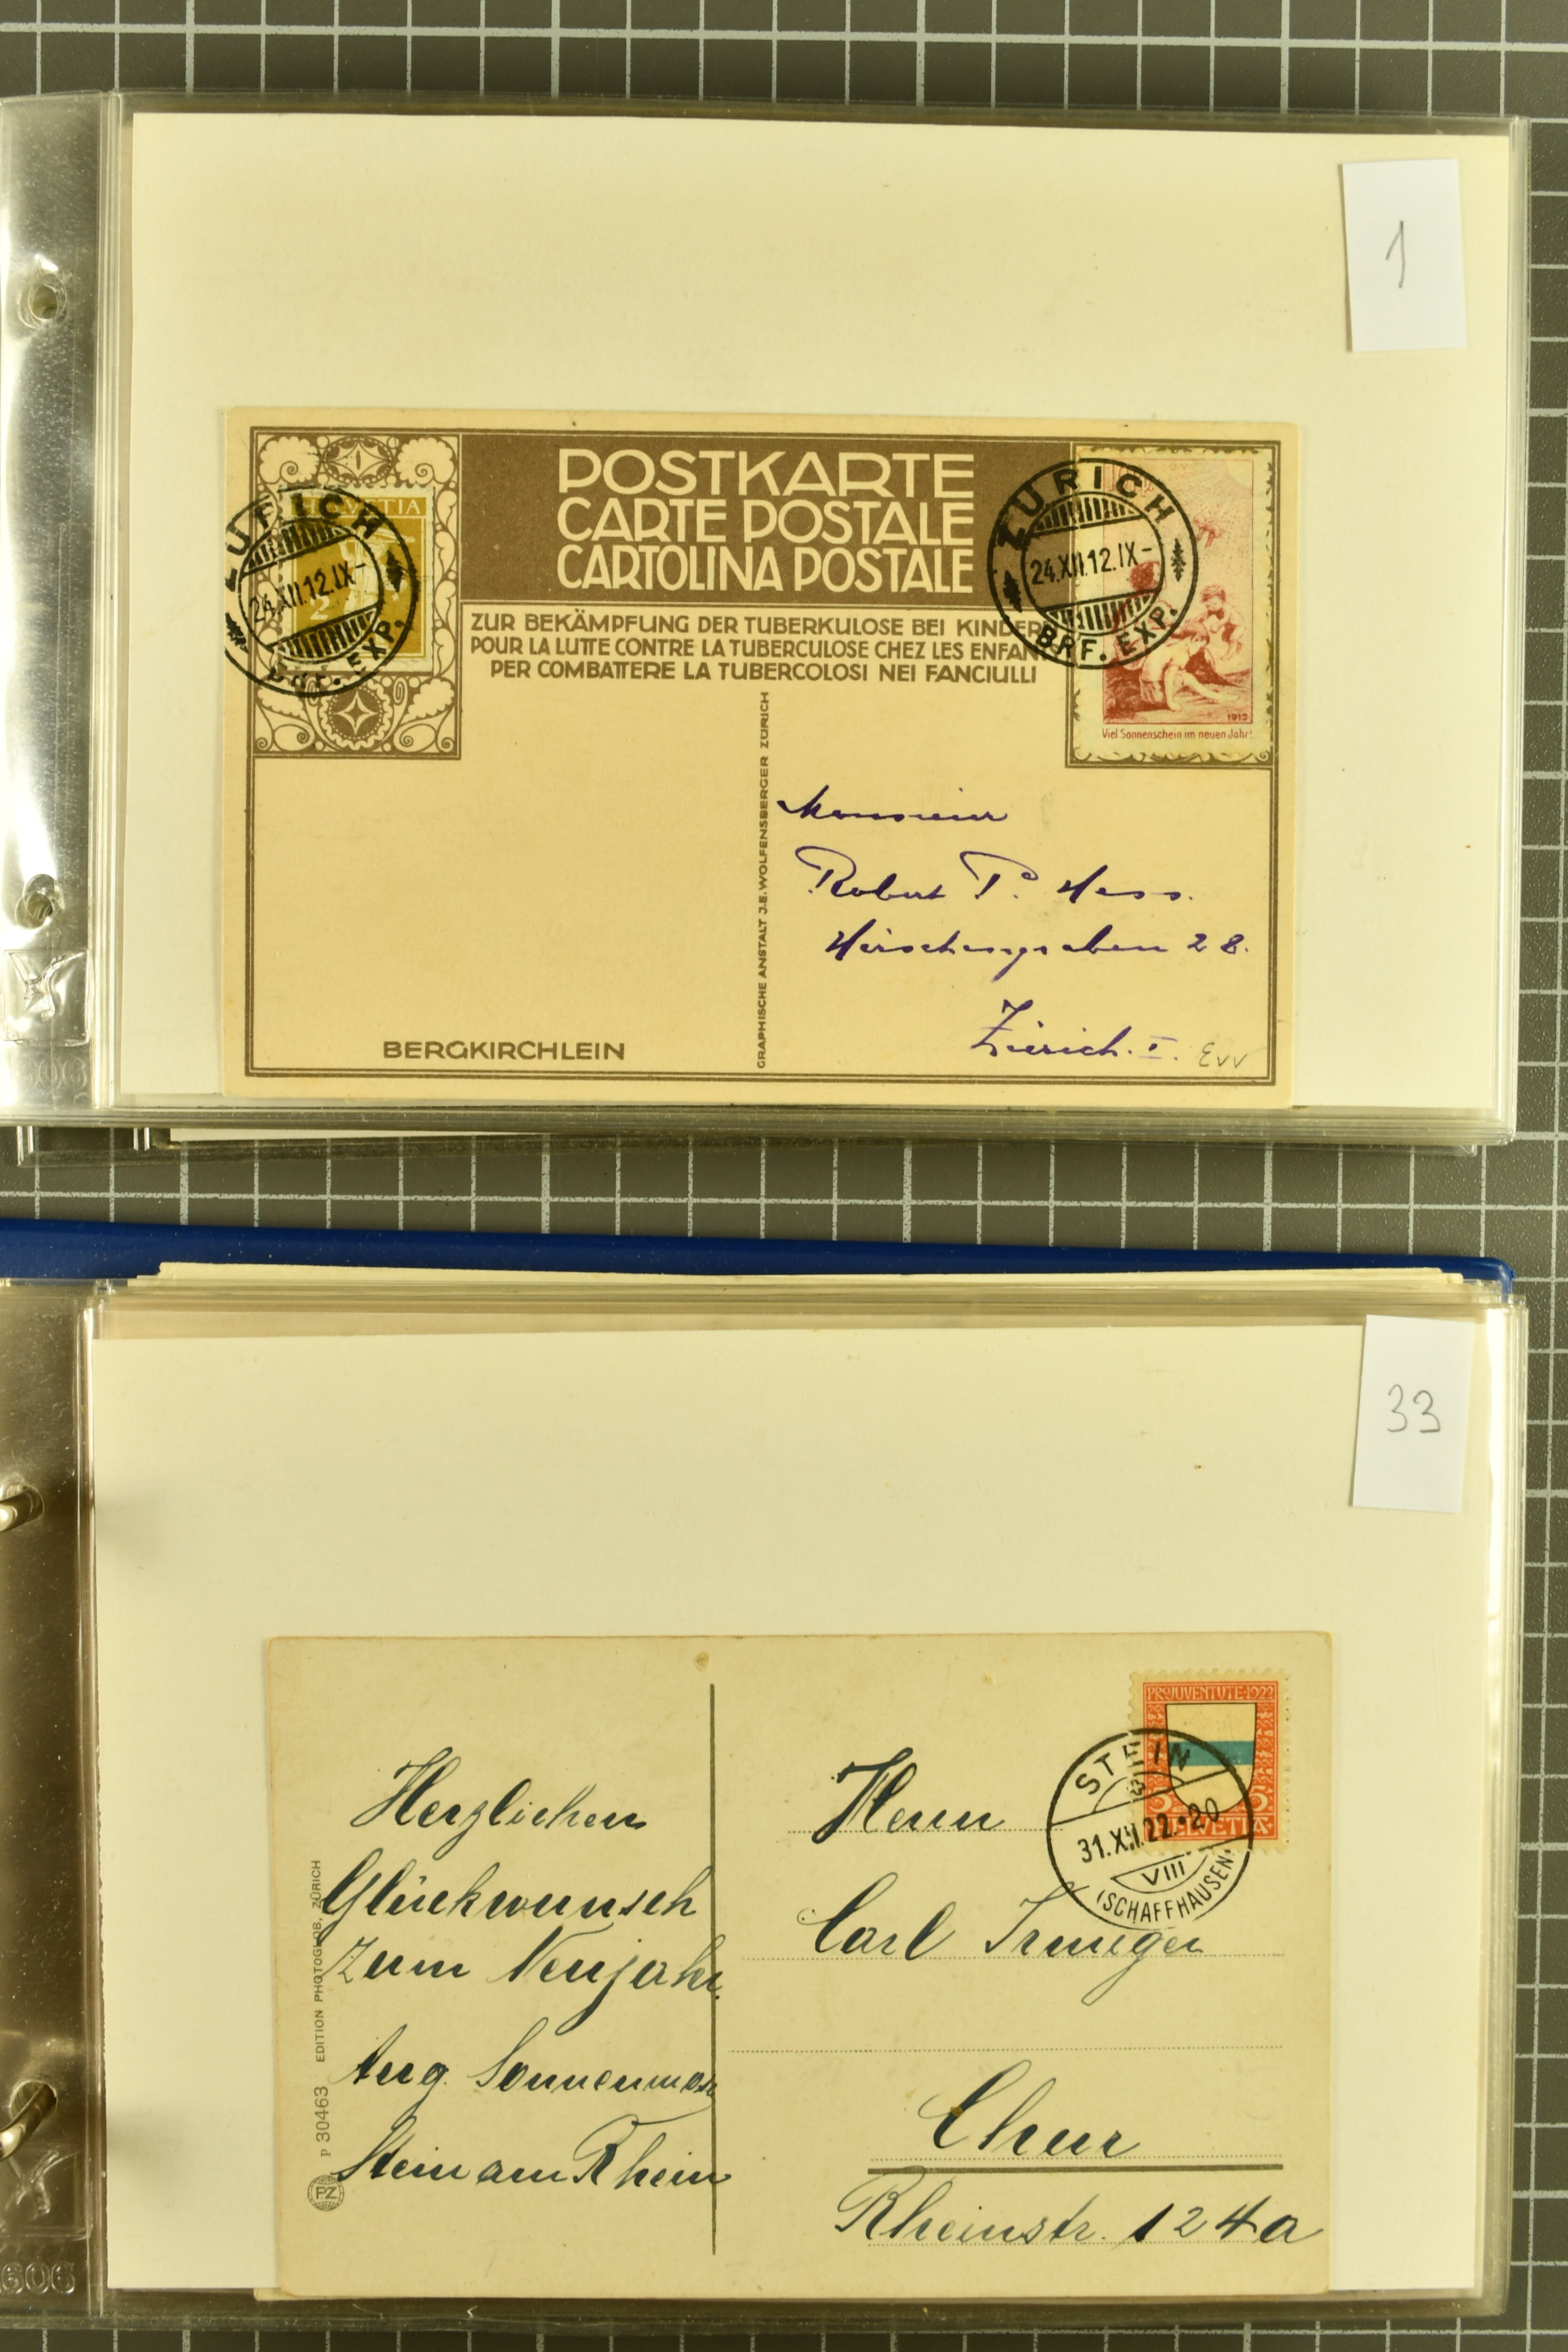 1
POSTKARTE
CARTE POSTALE
CARTOLINA POSTALE
ZUR BEKÄMPFUNG DER TUBERKULOSE BEI KINDERN
POUR LA LUTTE CONTRE LA TUBERCULOSE CHEZ LES ENFANTS
PER COMBATTERE LA TUBERCOLOSI NEI FANCIULLI
HELVETIA
2
ZÜRICH
24.XII.12.IX-
BRF. EXP.
ZÜRICH
24.XII.12.IX-
BRF. EXP.
1912
Viel Sonnenschein im neuen Jahr!
GRAPHISCHE ANSTALT J.E. WOLFENSBERGER ZÜRICH
Monsieur
Robert P. Hess.
Hirschengraben 28.
Zürich. I.
BERGKIRCHLEIN
33
PRO JUVENTUTE·1922
5 5
HELVETIA
STEIN
31.XII.22·20
VIII
(SCHAFFHAUSEN)
Herzlichen
Glückwunsch
zum Neujahr.
Aug. Sonnenmoser
Stein am Rhein
EDITION PHOTOGLOB, ZÜRICH
P 30463
PZ
Herrn
Carl Irmiger
Chur
Rheinstr. 124a
606